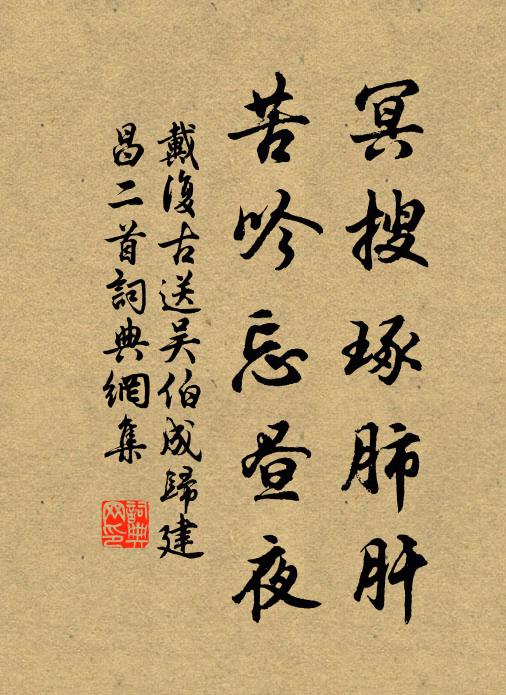 冥搜琢肺肝
苦吟忘昼夜
戴復古送吴伯成歸建
昌二首詞典網集
詞典網印